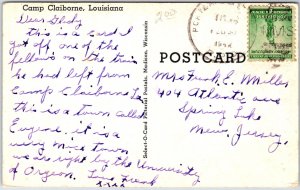 Camp Claiborne, Louisiana
Dear Gladys
this is a card I
got off one of the
fellows on the train
he had left from
Camp Claiborne La
this is a town called
Eugene, it is a
very nice town
we are right by the University
of Oregon. Love Frank
Select-O-Card Material Postals, Madison, Wisconsin
200
POSTCARD
Mrs Frank E. Miller
404 Atlantic ave
Spring Lake
New Jersey.